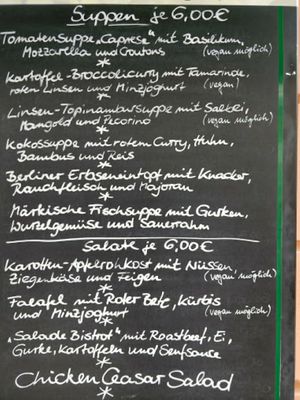 Suppen je 6,00€
Tomatensuppe „Caprese" mit Basilikum,
Mozzarella und Croutons (vegan möglich)
*
Kartoffel-Broccolicurry mit Tamarinde,
roten Linsen und Minzjoghurt (vegan)
*
Linsen-Topinambursuppe mit Salbei,
Mangold und Pecorino (vegan möglich)
*
Kokossuppe mit rotem Curry, Huhn,
Bambus und Reis
*
Berliner Erbseneintopf mit Knacker,
Rauchfleisch und Majoran
*
Märkische Fischsuppe mit Gurken,
Wurzelgemüse und Sauerrahm
Salate je 6,00€
Karotten-Apfelrohkost mit Nüssen,
Ziegenkäse und Feigen (vegan möglich)
*
Falafel mit Roter Bete, Kürbis
und Minzjoghurt (vegan möglich)
*
„Salade Bistrot" mit Roastbeef, Ei,
Gurke, Kartoffeln und Senfsauce
*
Chicken Ceasar Salad
*